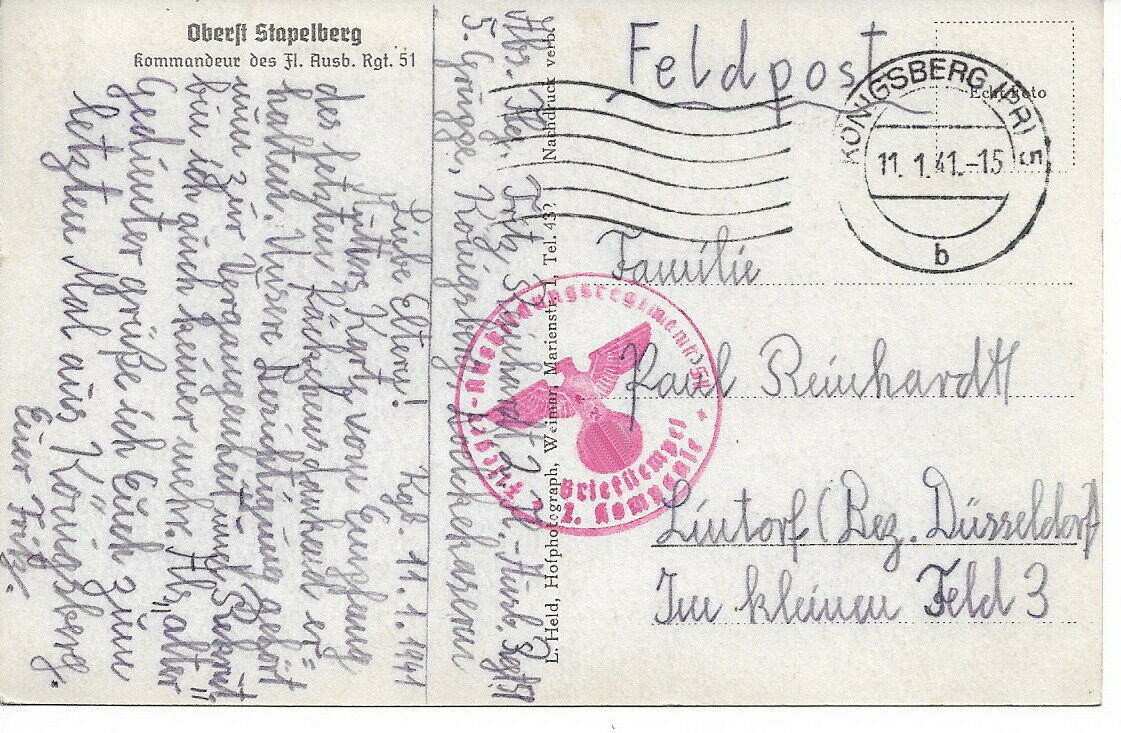 Oberst Stapelberg
Kommandeur des Fl. Ausb. Rgt. 51
Kgb. 11.1.1941
Liebe Eltern!
Mutters Karte vom Empfang
des letzten Päckchens dankend er=
halten. Unsere Besichtigung gehört
nun zur Vergangenheit und Rekrut
bin ich auch keiner mehr. Als „alter"
Gedienter grüße ich Euch zum
letzten Mal aus Königsberg.
Euer Fritz.
Abs. Flg. Fritz Reinhardt 2.
5. Gruppe, Königsberg,
L. Held, Hofphotograph, Weimar, Marienstr. 1, Tel. 432 Nachdruck verb.
Feldpost
Echt Foto
KÖNIGSBERG (PR) 5
11.1.41.-15
b
Familie
Karl Reinhardt
Lintorf (Bez. Düsseldorf
Im kleinen Feld 3
Flieger-Ausbildungsregiment 51
Briefstempel
2. Kompanie